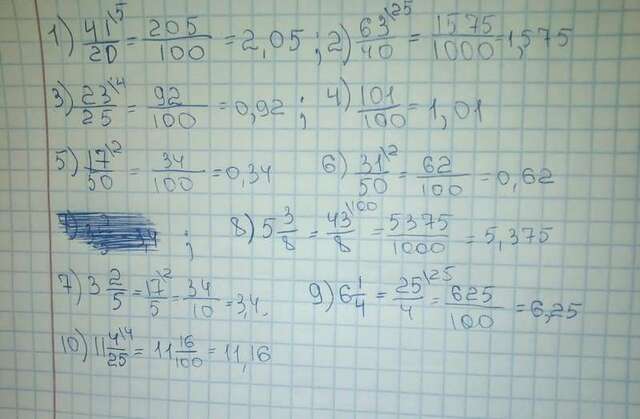 1) 41\5/20 = 205/100 = 2,05 ; 2) 63\25/40 = 1575/1000 = 1,575
3) 23\4/25 = 92/100 = 0,92 ; 4) 101/100 = 1,01
5) 17\2/50 = 34/100 = 0,34 6) 31\2/50 = 62/100 = 0,62
; 8) 5 3/8 = 43\100/8 = 5375/1000 = 5,375
7) 3 2/5 = 17\2/5 = 34/10 = 3,4. 9) 6 1/4 = 25\25/4 = 625/100 = 6,25
10) 11 4\4/25 = 11 16/100 = 11,16